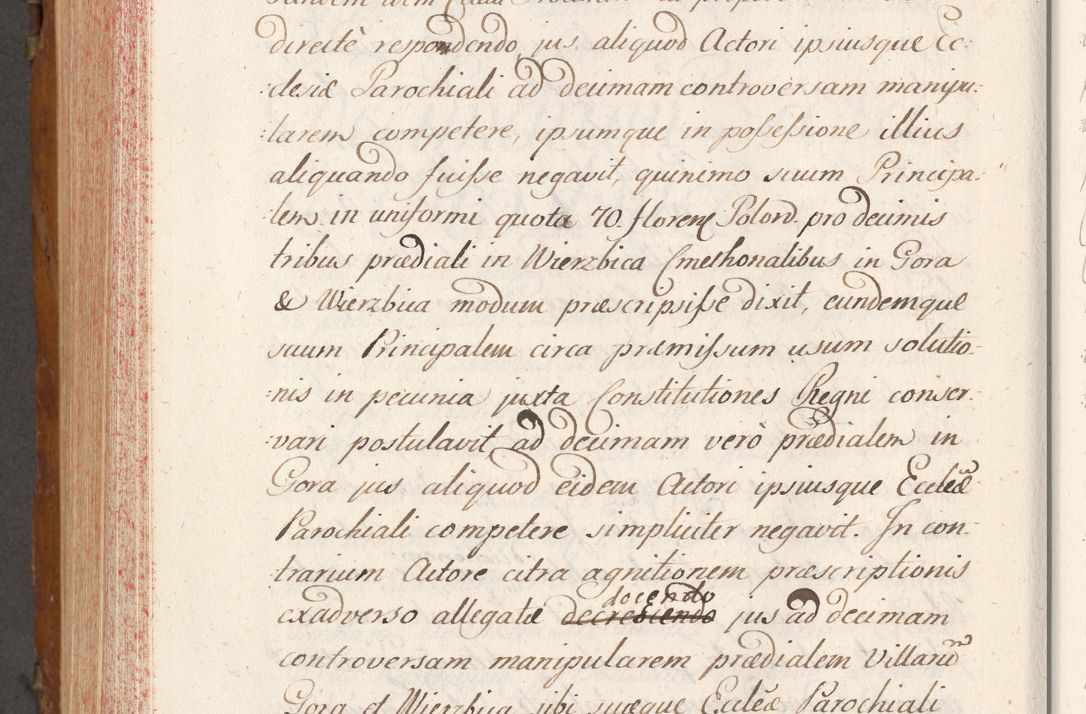 directè respondendo jus aliquod Actori ipsiusque Ec:
:clesiæ Parochiali ad decimam controversam manipu:
:larem competere, ipsumque in possessione illius
aliquando fuisse negavit, quinimo suum Principa:
lem in uniformi quota 70. floren Polon. pro decimis
tribus prædiali in Wierzbica Cmethonalibus in Gora
& Wierzbica modum præscripsisse dixit, eundemque
suum Principalem circa præmissum usum solutio:
:nis in pecunia juxta Constitutiones Regni conser:
:vari postulavit ad decimam verò prædialem in
Gora jus aliquod eidem Actori ipsiusque Eccleæ
Parochiali competere simpliciter negavit. In con:
trarium Actore citra agnitionem præscriptionis
exadverso allegatæ ~~decresiendo~~ docendo jus ad decimam
controversam manipularem prædialem Villarū
Gora et Wierzbica sibi suæque Eccleæ Parochiali